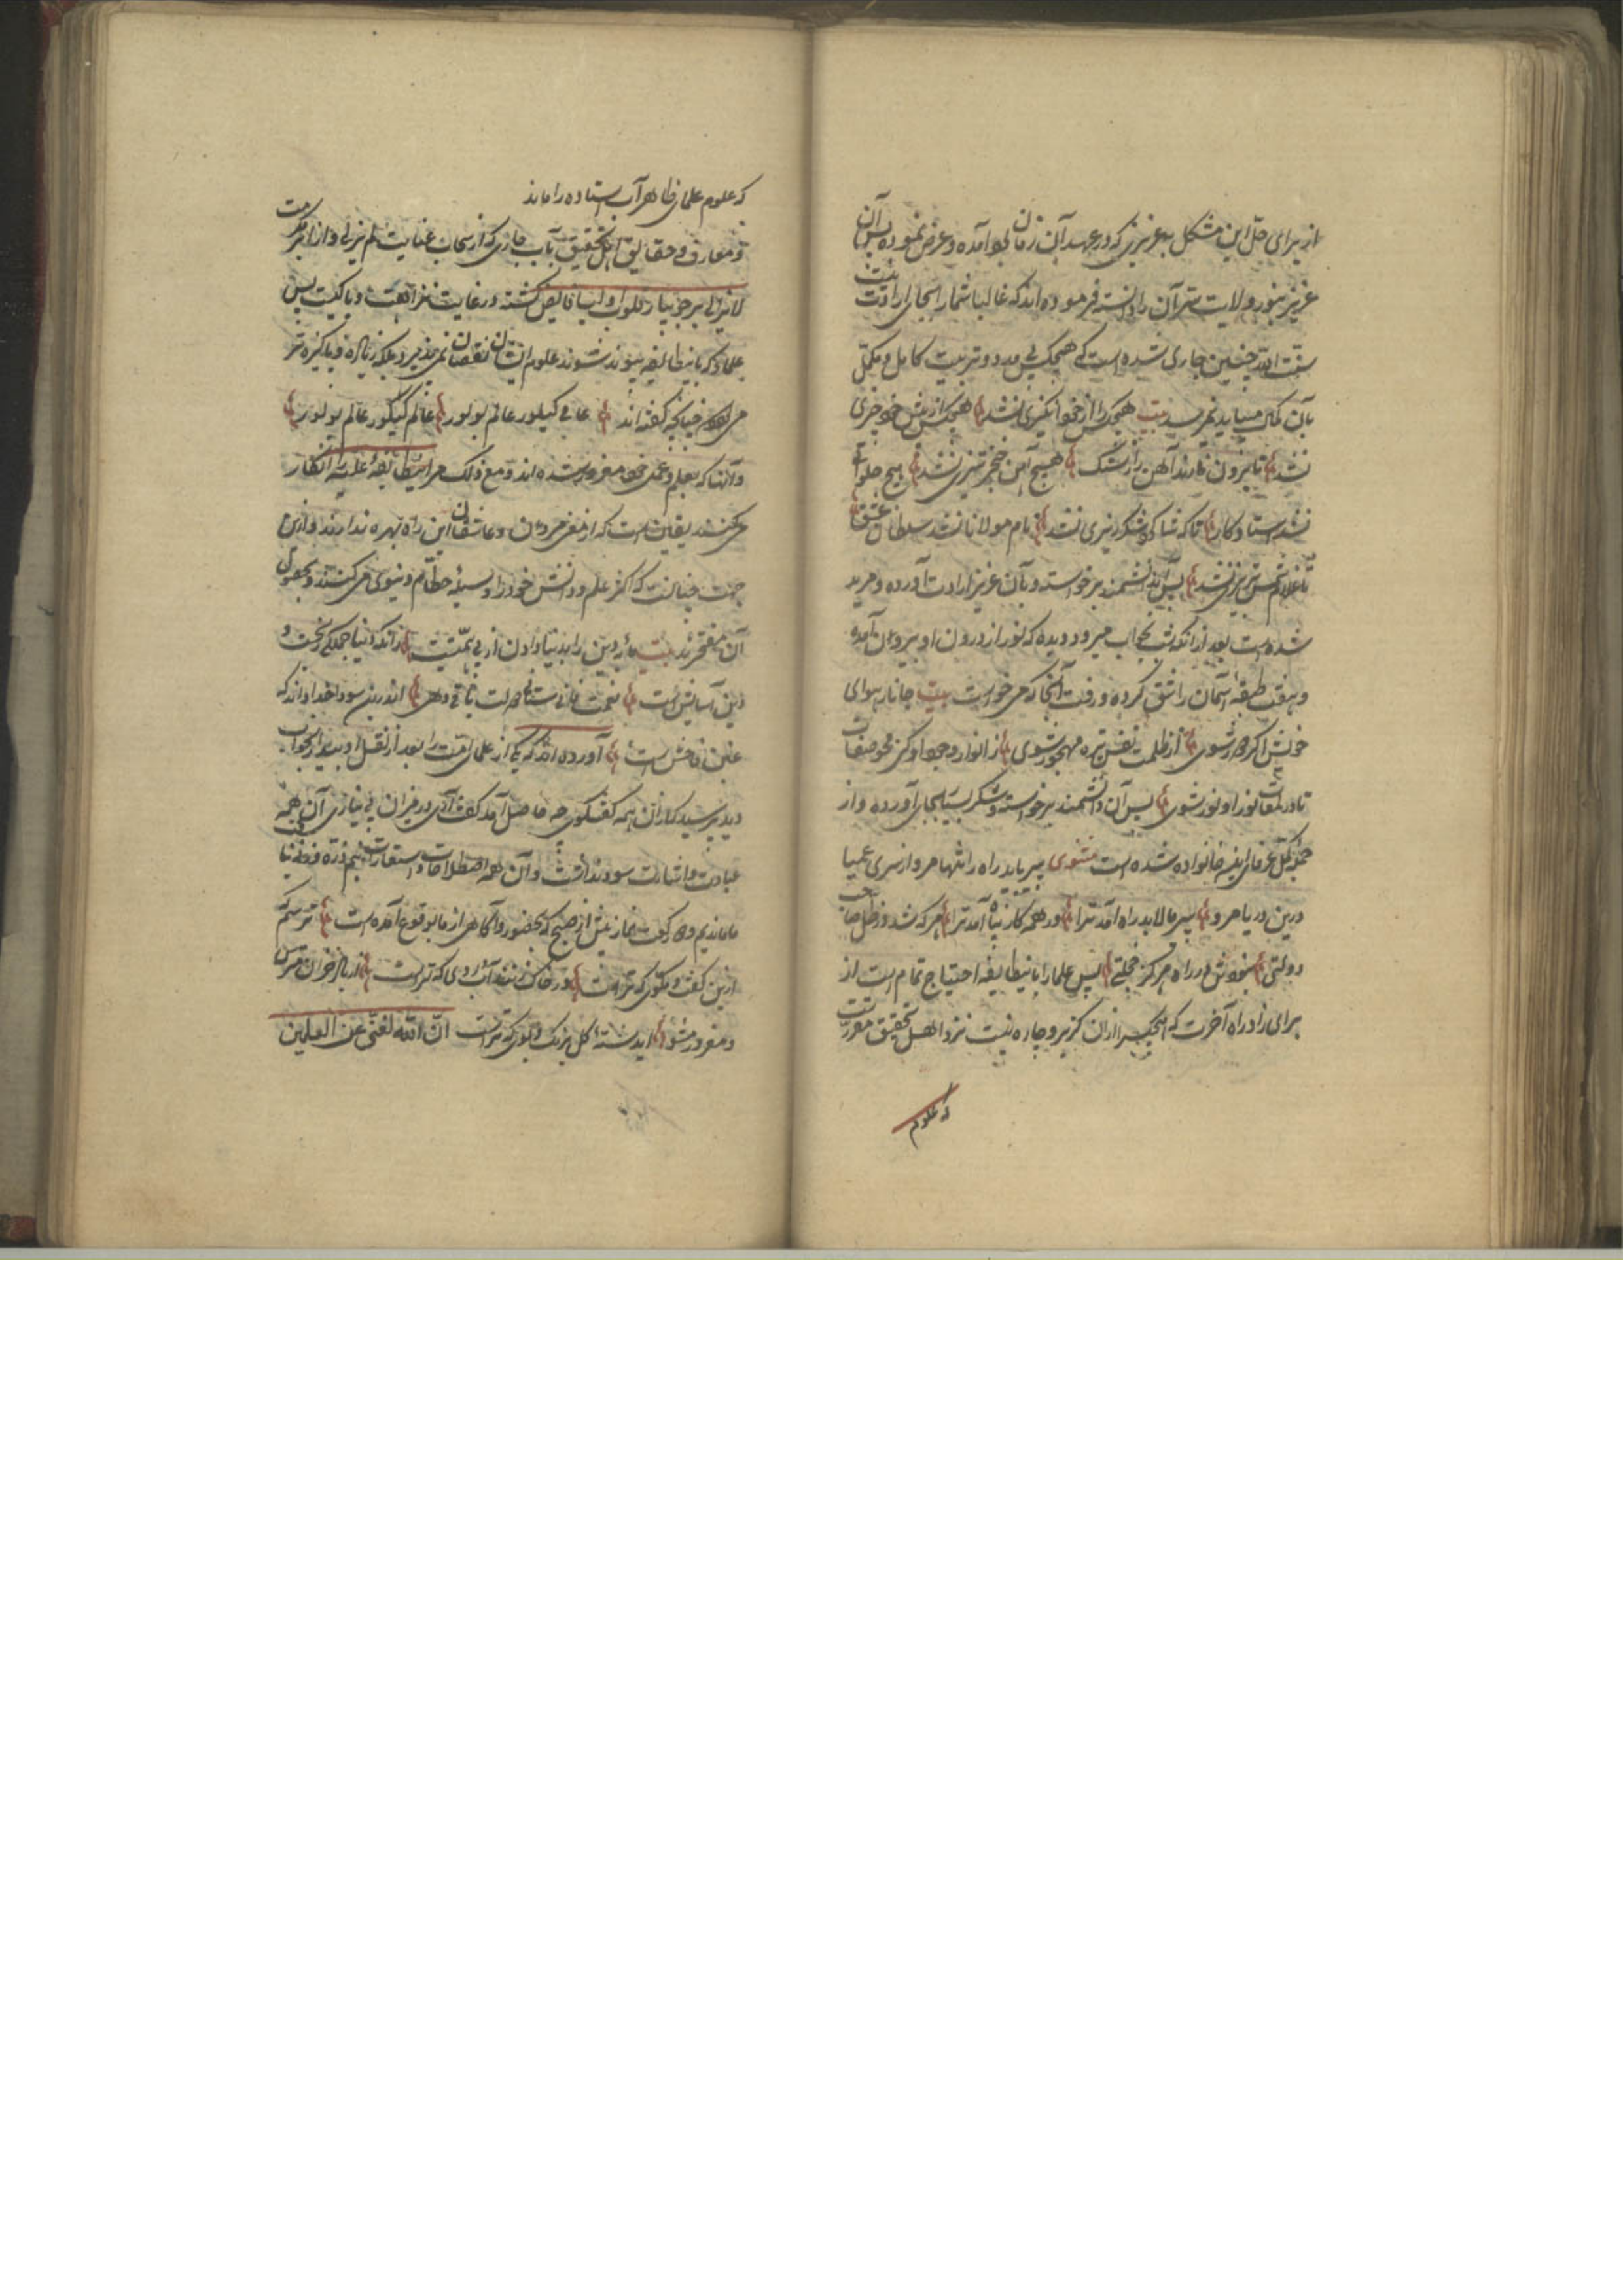 از برای حلّ این مشکل به عزیزی که در عهد آن زمان بود آمده و عرض نموده پس آن
عزیز بنور ولایت سرّ آن را دانسته فرموده‌اند که غالبا شما را بجای ارادت نیست
سنّت الله چنین جاری شده است که هیچکس بی مدد و تربیت کامل و مکمّل
بآن کمال نمیرسد بیت هیچکس از خود چیزی نشد هیچکس از پیش خود چیزی
نشد هیچ آهن خنجر تیزی نشد هیچ حلوائی
نشد استاد کار تا که شاگرد شکر ریزی نشد مولانا نشد سلطان عشق
تا غلام شمس تبریزی نشد پس آن دانشمند برخواسته و بآن عزیز ارادت آورده و مرید
شده است بعد از آنکه شب بخواب میرود دیده که نور از درون او بیرون آمده
و هفت طبقه آسمان را شق کرده و رفت آنجا که می خواست بیت جانا بهوای
خویش اگر دور شوی از ظلمت نفس تیره مهجور شوی از انوار وجود او محو صفات
تا در لمعات نور او نور شوی پس آن دانشمند برخواسته و شکر بسیار بجای آورده و از
خانواده شده است مثنوی پیر باید راه را تنها مرو از سر عمیا
درین دریا مرو پیر ما لابد راه آمد ترا در همه کار پناه آمد ترا هر که شد در ظل صاحب
دولتی نبودش در راه هرگز خجلتی پس علما را باین طایفه احتیاج تمام است از
برای زاد راه آخرت که هیچکس را از آن گزیر و چاره نیست نزد اهل تحقیق مقرر است
که علوم
که علوم علمای ظاهر آب استاده را ماند
و معارف و حقایق اهل تحقیق بآب جاری که از سحاب عنایت لم یزلی و از ابر مکرمت
لایزالی بر جویبار قلوب اولیا فایض گشته در غایت نزاهت و پاکیست پس
علما که باین طایفه پیوند شوند علوم ایشان نقصان نمی پذیرد بلکه زیاده و پاکیزه تر
می شود چنانچه گفته‌اند عامی کیلور عالم بولور عالم کیلور عالم بولور
و آنها که بعلم و عمل خود مغرور شده‌اند و مع ذلک مر این طایفه علیه را انکار
می کنند یقین است که از مغز مردان و عاشقان این راه بهره ندارند و ازین
جهت چنانست که اکثر علم و دانش خود را وسیله حطام دنیوی می کنند و بحصول
آن مفتخرند بیت مایه دین را بدنیا دادن از بی همّتیست زانکه دنیا جملگی رنجست و
دین آسایش است نعمت فانی ستانی دولت باقی دهی اندرین سودا خدا داند که
غبن فاحش است آورده‌اند که یکی از علمای امّت را بعد از نقل او بدیدار بخواب
دید پرسید که از آن همه گفتگوی چه حاصل آمد گفت آری در میزان بی نیازی آن همه
عبادت و اشارت سود نداشت و آن همه اصطلاحات و استعارات نیم ذرّه
ما ماندیم و دو رکعت نماز پیش از صبح که بحضور و آگاهی از ما بوقوع آمده است ترسم که
ازین گفت و بگوی که تراست در خاک آب روی که تراست
و مغرور مشو اندیشه گل برنگ و بوی که تراست انّ الله لغنی عن العالمین